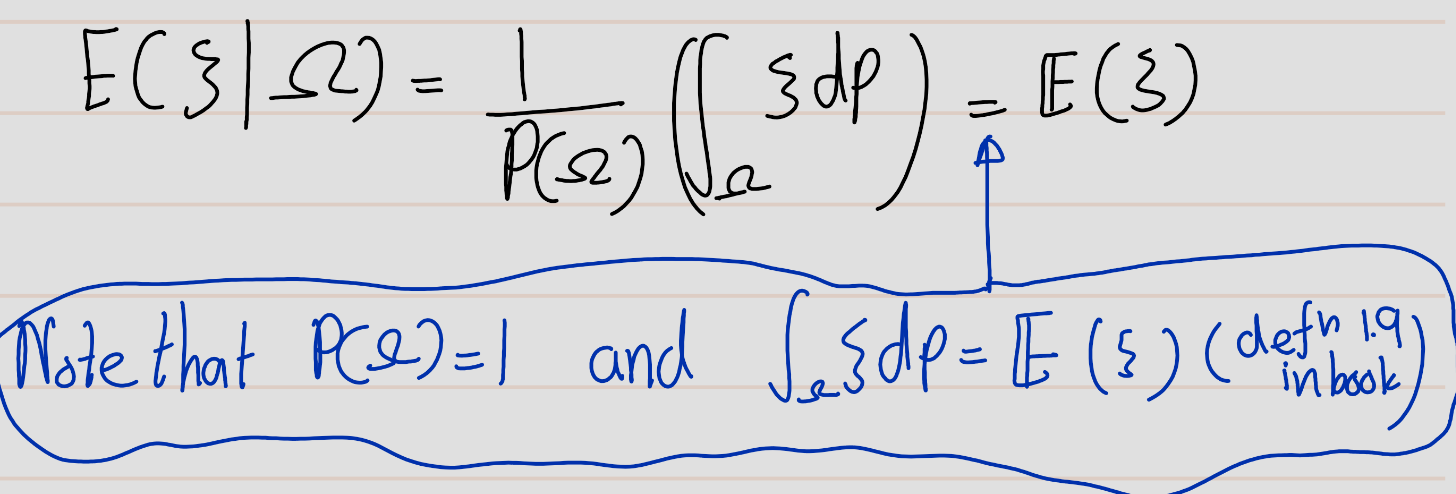 E(ξ|Ω) = 1/P(Ω) (∫_Ω ξdP) = 𝔼(ξ)
Note that P(Ω)=1 and ∫_Ω ξdP = 𝔼(ξ) (defn 1.9 in book)